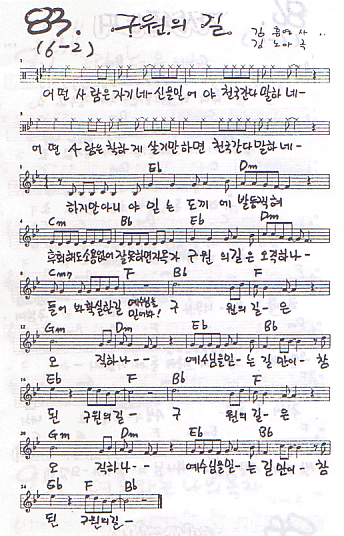 83. 구원의 길
(6-2)
어떤 사람은 자기네-신을 믿어야 천국간다 말하네-
어떤 사람은 착하게 살기만하면 천국간다 말하네-
Eb Dm
하지만 아니야 믿는 도끼에 발등찍혀
Cm Bb Eb Dm
후회해도 소용없어 잘못하면 지옥가 구원의 길은 오직하나-
Cm7 F Bb F
들어봐 확실한길 예수님을 믿어봐! 구 원의 길-은
Gm Dm Eb Bb
오 직하나-- 예수님을믿-는 길만이-참
Eb F Bb F
된 구원의길- 구 원의 길-은
Gm Dm Eb Bb
오 직하나-- 예수님을믿-는 길만이-참
Eb F Bb
된 구원의길-